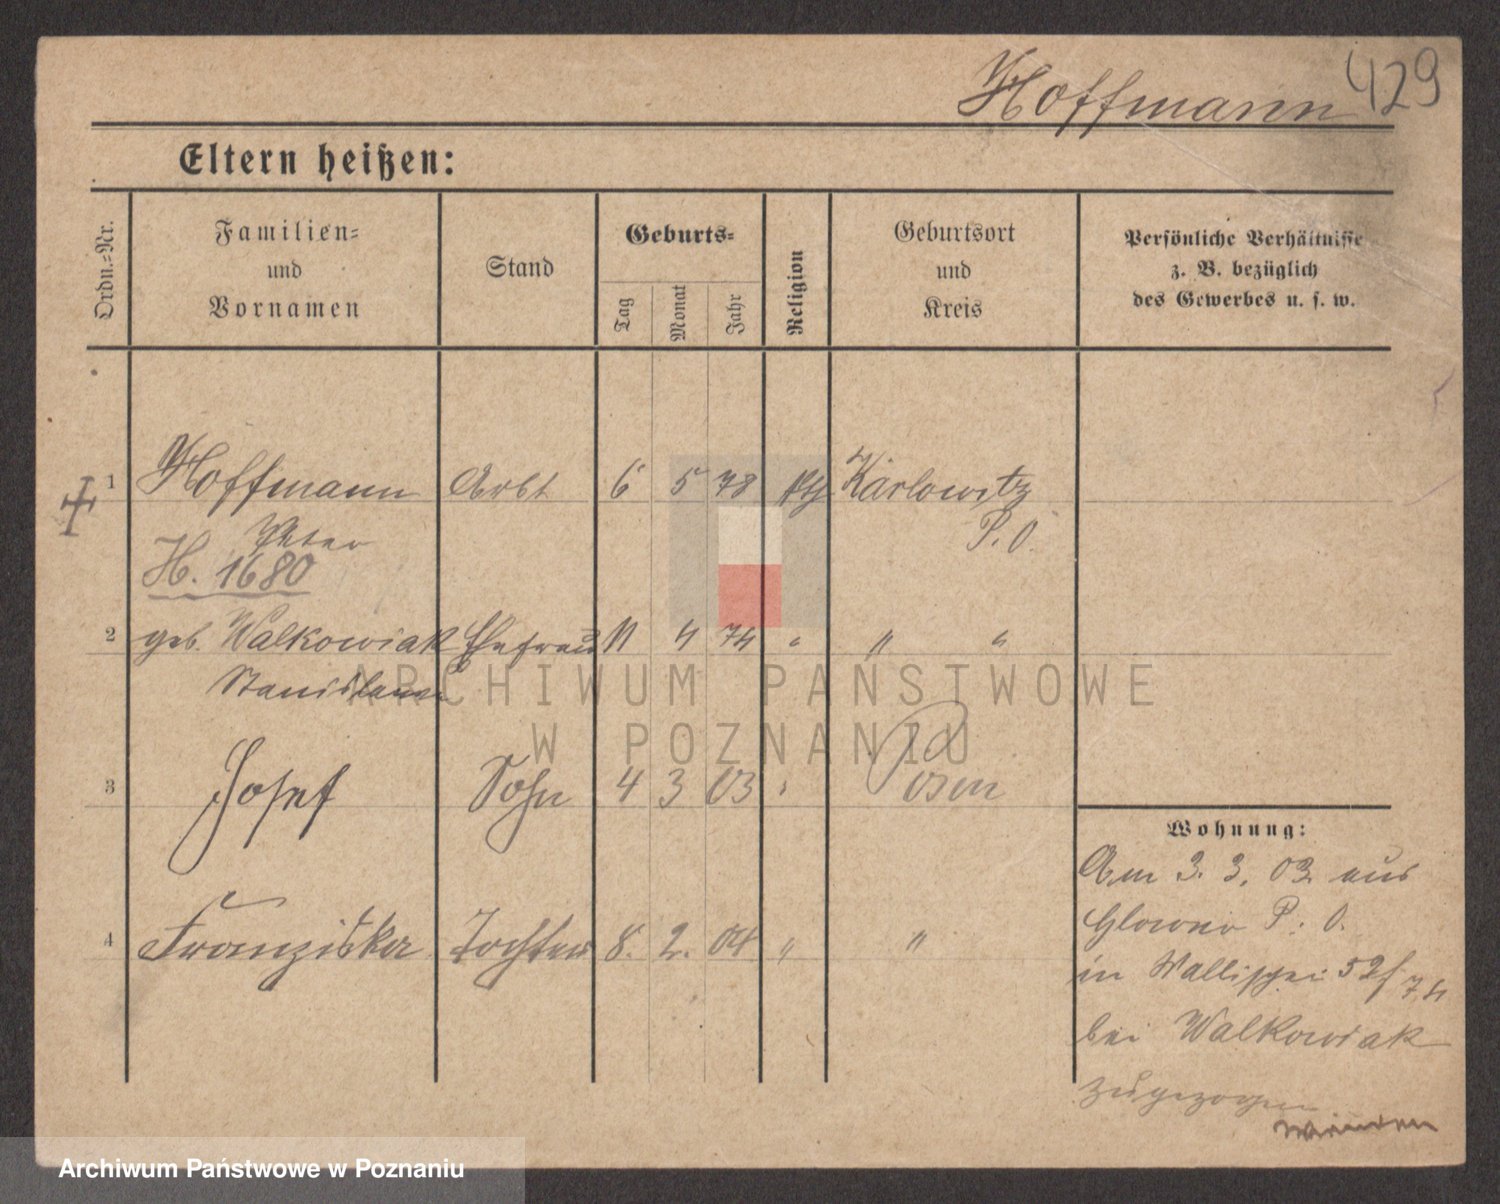 429
Hoffmann
Eltern heißen:
Ordn.-Nr.
Familien-
und
Vornamen
Stand
Geburts-
Tag
Monat
Jahr
Religion
Geburtsort
und
Kreis
Persönliche Verhältnisse
z. B. bezüglich
des Gewerbes u. s. w.
1 Hoffmann Arbt 6 5 78 kth Karlowitz
Peter P. O.
H. 1680
2 geb. Walkowiak Ehefrau 11 4 74 " " "
Stanislawa
3 Josef Sohn 4 3 03 " Posen
4 Franziska Tochter 8. 2. 04 " "
Wohnung:
Am 3. 3. 03 aus
Glowno P. O.
in Wallischei 52/74
bei Walkowiak
zugezogen
ARCHIWUM PAŃSTWOWE
W POZNANIU
Archiwum Państwowe w Poznaniu